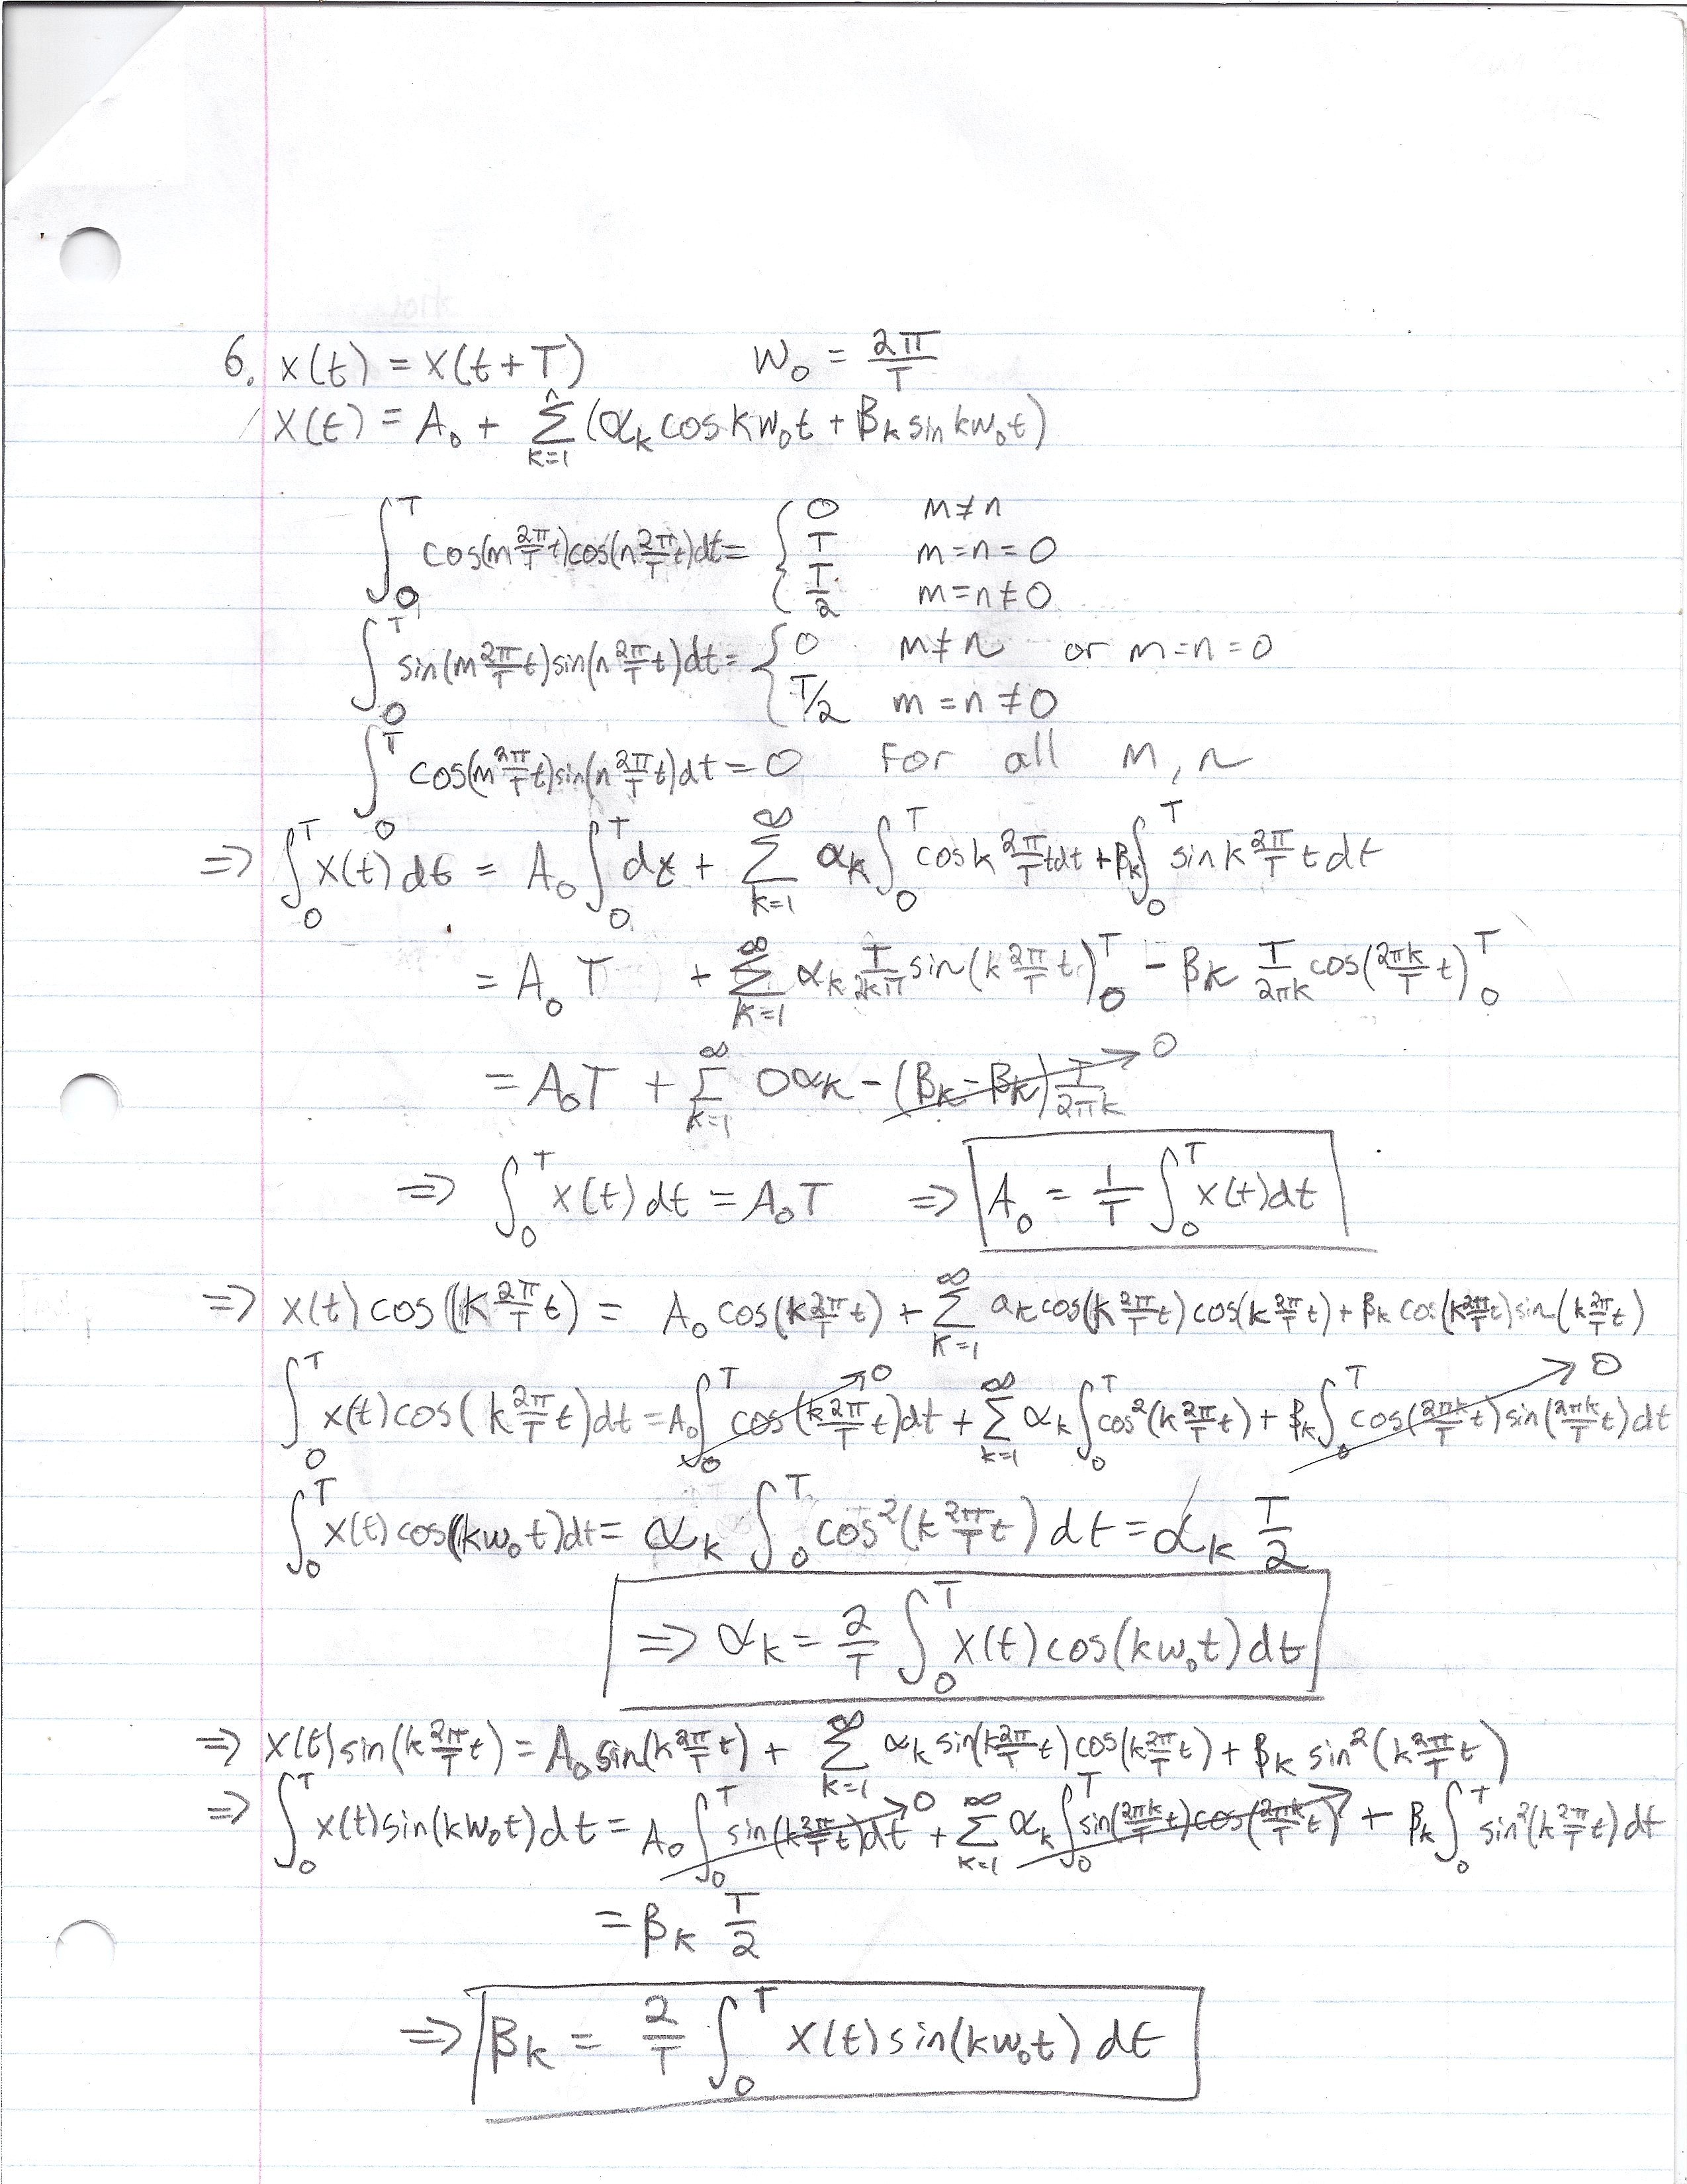 6. x(t) = x(t+T)    w₀ = 2π/T
x(t) = A₀ + Σ_{k=1}^{^} (α_k cos k w₀ t + β_k sin k w₀ t)
∫₀ᵀ cos(m 2π/T t) cos(n 2π/T t) dt = { 0    m≠n
T    m=n=0
T/2    m=n≠0
∫₀ᵀ sin(m 2π/T t) sin(n 2π/T t) dt = { 0    m≠n or m=n=0
T/2    m=n≠0
∫₀ᵀ cos(m 2π/T t) sin(n 2π/T t) dt = 0    For all m, n
⇒ ∫₀ᵀ x(t) dt = A₀ ∫₀ᵀ dt + Σ_{k=1}^∞ α_k ∫₀ᵀ cos k 2π/T t dt + β_k ∫₀ᵀ sin k 2π/T t dt
= A₀ T + Σ_{k=1}^∞ α_k T/2kπ sin(k 2π/T t)₀ᵀ − β_k T/2πk cos(2πk/T t)₀ᵀ
= A₀T + Σ_{k=1}^∞ 0α_k − (β_k − β_k) T/2πk → 0
⇒ ∫₀ᵀ x(t) dt = A₀T ⇒ A₀ = 1/T ∫₀ᵀ x(t) dt
⇒ x(t) cos(k 2π/T t) = A₀ cos(k 2π/T t) + Σ_{k=1}^∞ α_k cos(k 2π/T t) cos(k 2π/T t) + β_k cos(k 2π/T t) sin(k 2π/T t)
∫₀ᵀ x(t) cos(k 2π/T t) dt = A₀ ∫₀ᵀ cos(k 2π/T t) dt → 0 + Σ_{k=1}^∞ α_k ∫₀ᵀ cos²(k 2π/T t) + β_k ∫₀ᵀ cos(2πk/T t) sin(2πk/T t) dt → 0
∫₀ᵀ x(t) cos(k w₀ t) dt = α_k ∫₀ᵀ cos²(k 2π/T t) dt = α_k T/2
⇒ α_k = 2/T ∫₀ᵀ x(t) cos(k w₀ t) dt
⇒ x(t) sin(k 2π/T t) = A₀ sin(k 2π/T t) + Σ_{k=1}^∞ α_k sin(k 2π/T t) cos(k 2π/T t) + β_k sin²(k 2π/T t)
⇒ ∫₀ᵀ x(t) sin(k w₀ t) dt = A₀ ∫₀ᵀ sin(k 2π/T t) dt → 0 + Σ_{k=1}^∞ α_k ∫₀ᵀ sin(2πk/T t) cos(2πk/T t) → + β_k ∫₀ᵀ sin²(k 2π/T t) dt
= β_k T/2
⇒ β_k = 2/T ∫₀ᵀ x(t) sin(k w₀ t) dt